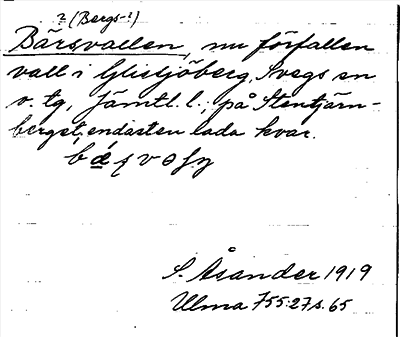 ? (Bergs-?)
Bärsvallen, nu förfallen
vall i Glissjöberg, Svegs sn
v. tg, Jämtl. l.; på Stentjärn-
berget; endasten lada kvar.
S. Åsander 1919
Ulma 755:27 s. 65